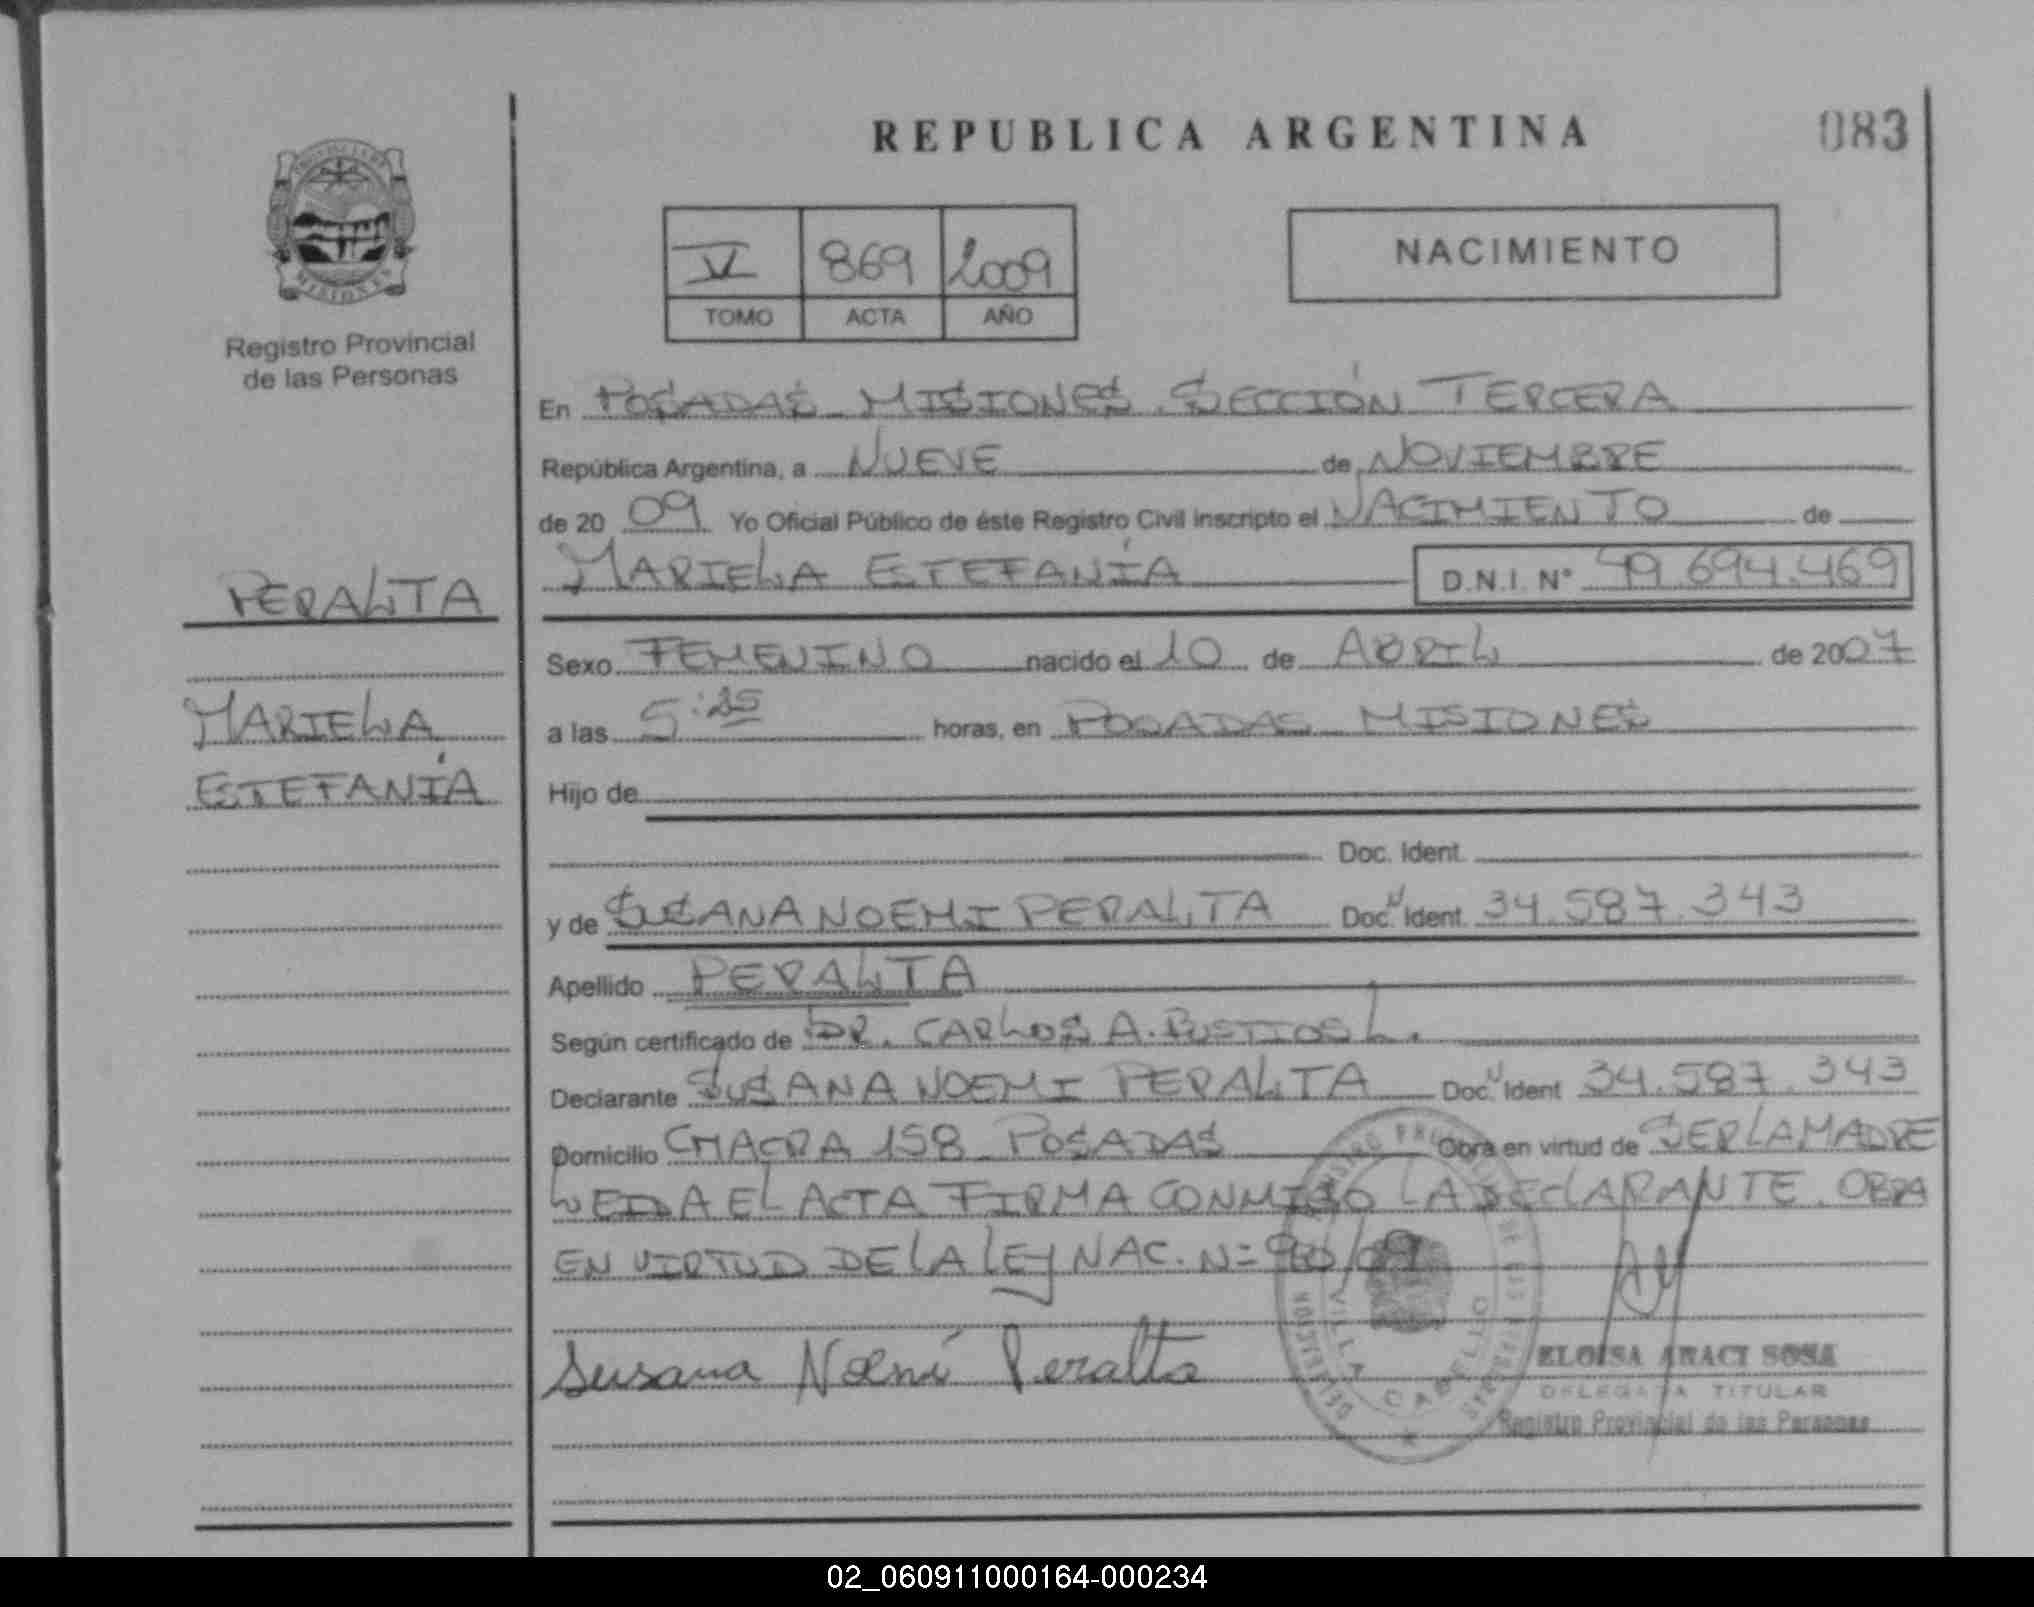 REPUBLICA ARGENTINA
083
PROVINCIA DE
MISIONES
Registro Provincial
de las Personas
V 869 2009
TOMO ACTA AÑO
NACIMIENTO
En POSADAS MISIONES. SECCIÓN TERCERA
República Argentina, a NUEVE de NOVIEMBRE
de 20 09 Yo Oficial Público de éste Registro Civil inscripto el NACIMIENTO de
MARIELA ESTEFANÍA D.N.I. Nº 49.694.469
PERALTA
MARIELA
ESTEFANÍA
Sexo FEMENINO nacido el 10 de ABRIL de 2007
a las 5: horas, en POSADAS MISIONES
Hijo de
Doc. Ident.
y de SUSANA NOEMI PERALTA Doc. Ident. 34.587.343
Apellido PERALTA
Según certificado de DR. CARLOS A. BUSTIOS L.
Declarante SUSANA NOEMI PERALTA Doc. Ident 34.587.343
Domicilio CHACRA 158 POSADAS Obra en virtud de SER LA MADRE
LEIDA EL ACTA FIRMA CONMIGO LA DECLARANTE. OBRA
EN VIRTUD DE LA LEY NAC. Nº
Susana Noemí Peralta
VILLA CABELLO
ELOISA ARACI SOSA
DELEGADA TITULAR
Registro Provincial de las Personas
02_060911000164-000234